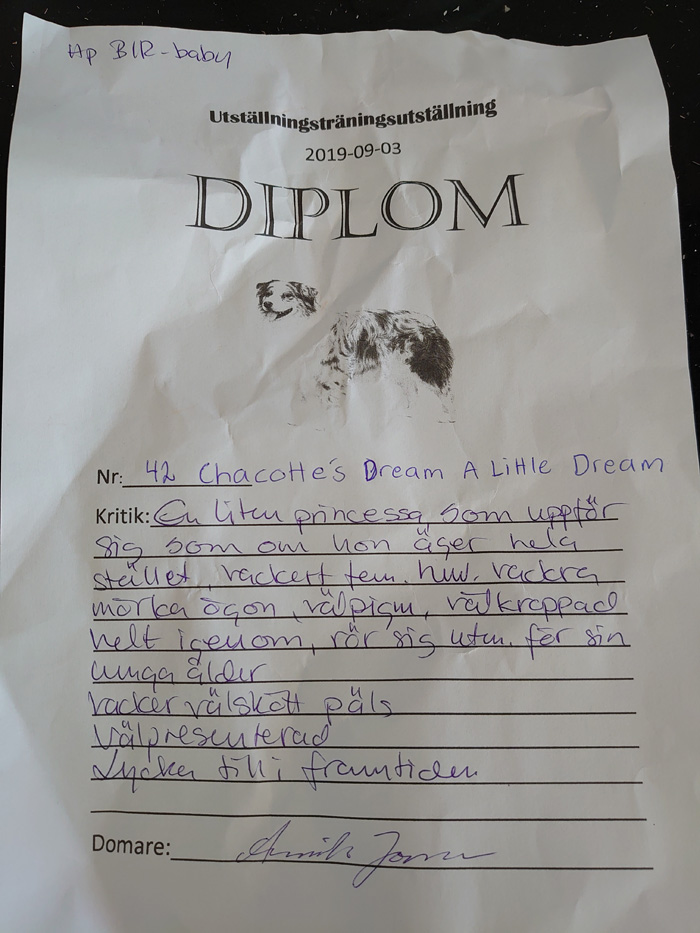 Hp BIR-baby
Utställningsträningsutställning
2019-09-03
DIPLOM
Nr: 42 Chacotte's Dream A Little Dream
Kritik: En liten princessa som uppför
sig som om hon äger hela
stället, vackert fem. huv. vackra
mörka ögon, välpigm, välkroppad
helt igenom, rör sig utm. för sin
unga ålder
vacker välskött päls
Välpresenterad
Lycka till i framtiden
Domare: